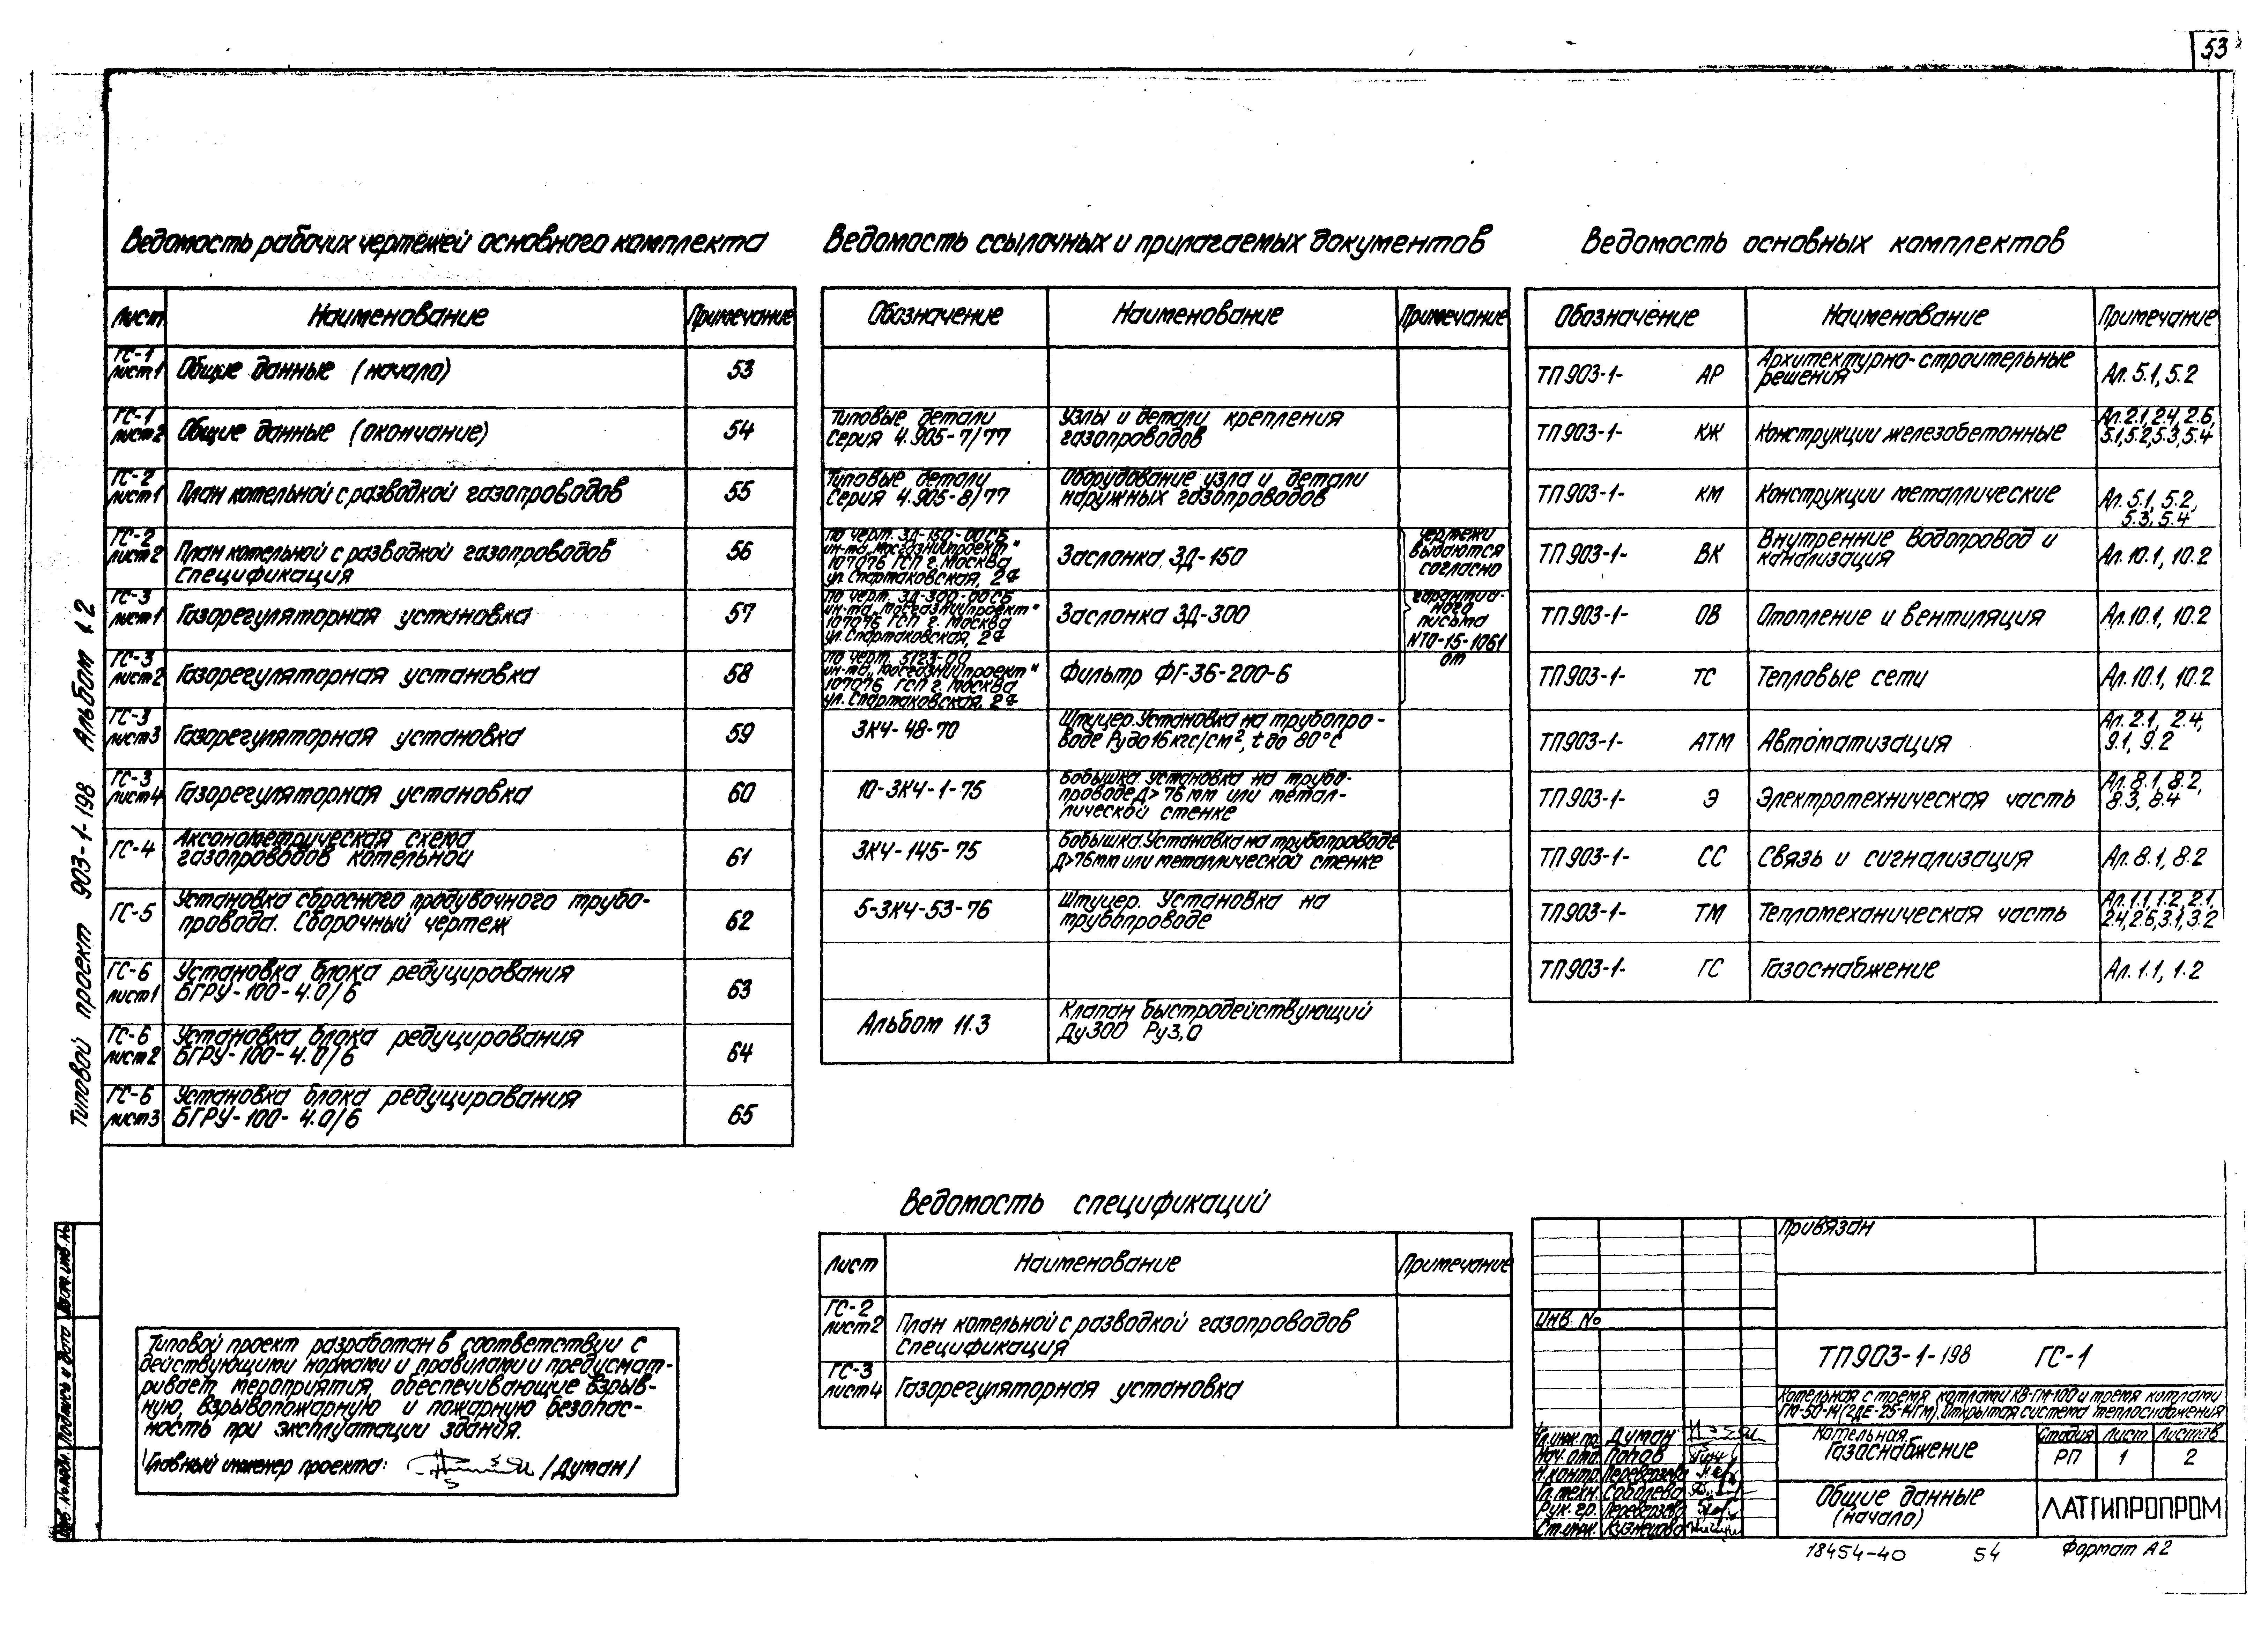 53
Ведомость рабочих чертежей основного комплекта
Лист Наименование Примечание
ГС-1
лист1 Общие данные (начало) 53
ГС-1
лист2 Общие данные (окончание) 54
ГС-2
лист1 План котельной с разводкой газопроводов 55
ГС-2
лист2 План котельной с разводкой газопроводов 56
спецификация
ГС-3
лист1 Газорегуляторная установка 57
ГС-3
лист2 Газорегуляторная установка 58
ГС-3
лист3 Газорегуляторная установка 59
ГС-3
лист4 Газорегуляторная установка 60
ГС-4 Аксонометрическая схема
газопроводов котельной 61
ГС-5 Установка сбросного продувочного трубо-
провода. Сборочный чертеж 62
ГС-6 Установка блока редуцирования
лист1 БГРУ-100-4.0/6 63
ГС-6 Установка блока редуцирования
лист2 БГРУ-100-4.0/6 64
ГС-6 Установка блока редуцирования
лист3 БГРУ-100-4.0/6 65
Ведомость ссылочных и прилагаемых документов
Обозначение Наименование Примечание
Типовые детали Узлы и детали крепления
Серия 4.905-7/77 газопроводов
Типовые детали Оборудование узла и детали
Серия 4.905-8/77 наружных газопроводов
по черт. ЗД-150-00СБ
ин-та „Мосгазниипроект"
107076 ГСП г. Москва
ул. Спартаковская, 2а
Заслонка ЗД-150
по черт. ЗД-300-00СБ
ин-та „Мосгазниипроект"
107076 ГСП г. Москва
ул. Спартаковская, 2а
Заслонка ЗД-300
по черт. 5123-00
ин-та „Мосгазниипроект"
107076 ГСП г. Москва
ул. Спартаковская, 2а
Фильтр ФГ-36-200-6
чертежи
выдаются
согласно
гарантий-
ного
письма
NТО-15-1061
от
ЗК4-48-70 Штуцер. Установка на трубопро-
воде Ру до 16 кгс/см², t до 80°С
10-ЗК4-1-75 Бобышка. Установка на трубо-
проводе Д>76 мм или метал-
лической стенке
ЗК4-145-75 Бобышка. Установка на трубопроводе
Д>76мм или металлической стенке
5-ЗК4-53-76 Штуцер. Установка на
трубопроводе
Альбом 11.3 Клапан быстродействующий
Ду300 Ру3,0
Ведомость основных комплектов
Обозначение Наименование Примечание
ТП903-1- АР Архитектурно-строительные
решения Ал. 5.1, 5.2
ТП903-1- КЖ Конструкции железобетонные Ал. 2.1, 2.4, 2.6,
5.1, 5.2, 5.3, 5.4
ТП903-1- КМ Конструкции металлические Ал. 5.1, 5.2,
5.3, 5.4
ТП903-1- ВК Внутренние водопровод и
канализация Ал. 10.1, 10.2
ТП903-1- ОВ Отопление и вентиляция Ал. 10.1, 10.2
ТП903-1- ТС Тепловые сети Ал. 10.1, 10.2
ТП903-1- АТМ Автоматизация Ал. 2.1, 2.4,
9.1, 9.2
ТП903-1- Э Электротехническая часть Ал. 8.1, 8.2,
8.3, 8.4
ТП903-1- СС Связь и сигнализация Ал. 8.1, 8.2
ТП903-1- ТМ Тепломеханическая часть Ал. 1.1, 1.2, 2.1,
2.4, 2.6, 3.1, 3.2
ТП903-1- ГС Газоснабжение Ал. 1.1, 1.2
Типовой проект 903-1-198 Альбом 1.2
Ведомость спецификаций
Лист Наименование Примечание
ГС-2
лист2 План котельной с разводкой газопроводов
Спецификация
ГС-3
лист4 Газорегуляторная установка
Типовой проект разработан в соответствии с
действующими нормами и правилами и предусмат-
ривает мероприятия, обеспечивающие взрыв-
ную, взрывопожарную и пожарную безопас-
ность при эксплуатации здания.
Главный инженер проекта: /Думан/
Инв. № подл. Подпись и дата Взам. инв. №
Привязан
Инв. №
ТП903-1-198 ГС-1
Котельная с тремя котлами КВ-ГМ-100 и тремя котлами
ГМ-50-14 (2ДЕ-25-14ГМ). Открытая система теплоснабжения
Гл.инж.пр. Думан
Нач.отд. Попов
Н.контр. Переверзева
Гл.техн. Соболева
Рук. гр. Переверзева
Ст.инж. Кузнецова
Котельная
Газоснабжение
Стадия Лист Листов
РП 1 2
Общие данные
(начало)
ЛАТГИПРОПРОМ
18454-40 54 Формат А2